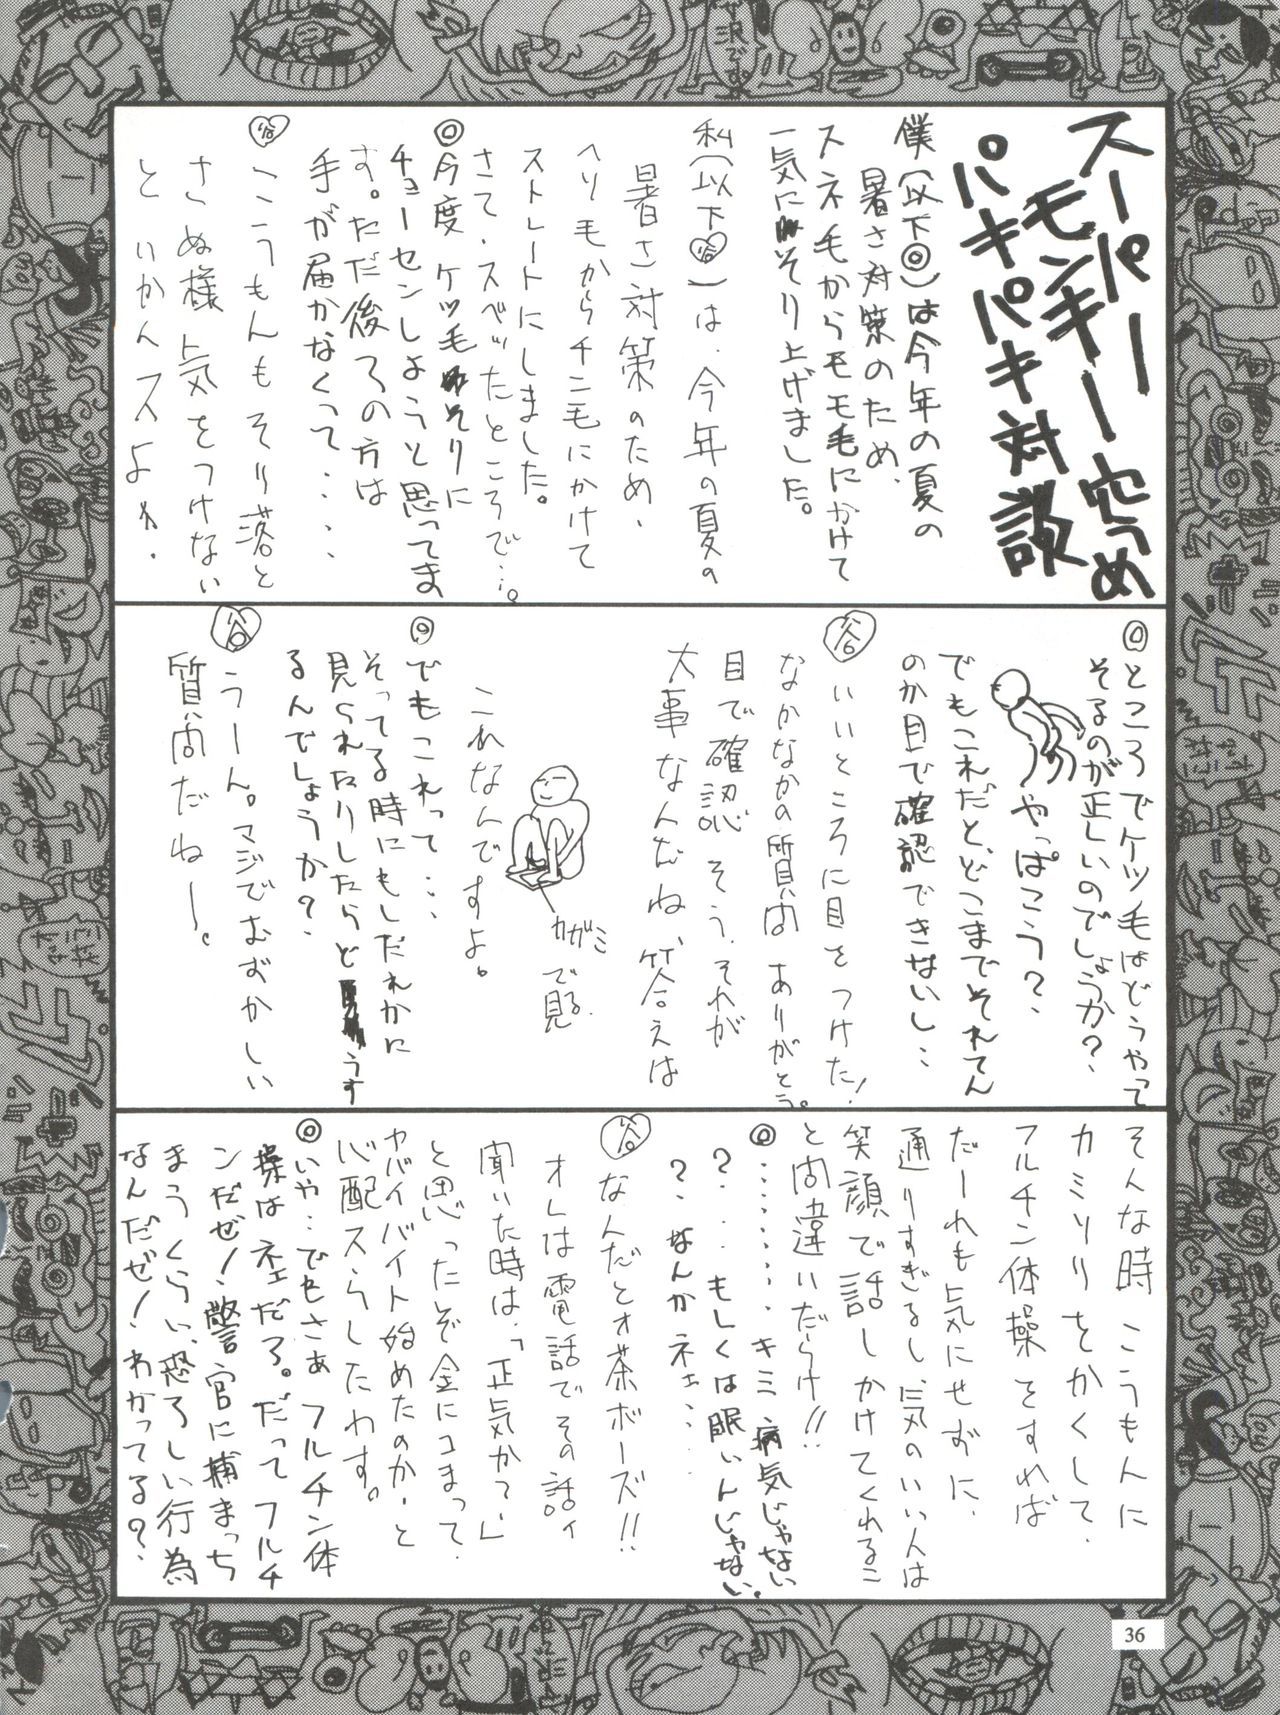 スーパー
モンキー 穴うめ
パキパキ対談
僕(以下◎)は今年の夏の
暑さ対策のため、
スネ毛からモモ毛にかけて
一気にそり上げました。
私(以下谷)は、今年の夏の
暑さ対策のため、
ヘリ毛からチン毛にかけて
ストレートにしました。
さて、スベッたところで…。
◎今度ケツ毛そりに
チョーセンしようと思ってま
す。ただ後ろの方は
手が届かなくって・・・・
谷 こうもんもそり落と
さぬ様気をつけない
といかんスよ
◎ところでケツ毛はどうやって
そるのが正しいのでしょうか?
やっぱこう?、
でもこれだと、どこまでそれてん
のか目で確認できないし・・
谷 いいところに目をつけた!
なかなかの質問ありがとう。
目で確認そう、それが
大事なんだね、答えは
カガミ
で見る
これなんですよ。
◎でもこれって・・・
そってる時にもしだれかに
見られたりしたらどうす
るんでしょうか?
谷 うーん。マジでむずかしい
質問だねー。
そんな時こうもんに
カミソリをかくして、
フルチン体操をすれば
だーれも気にせずに、
通りすぎるし、気のいい人は
笑顔で話しかけてくれるこ
と間違いだらけ!!
◎・・・・・・・キミ病気じゃない
?・・もしくは眠いんじゃない
?、なんかネェ・・・
谷 なんだとォ茶ボーズ!!
オレは電話でその話ィ
聞いた時は、「正気か?」
と思ったぞ金にコまって
ヤバイバイト始めたのか、と
心配スらしたわす。
◎いや・・でもさぁフルチン体
操はネェだろ。だってフルチ
ンだぜ!警官に捕まっち
まうくらい、恐ろしい行為
なんだぜ!わかってる?、
36